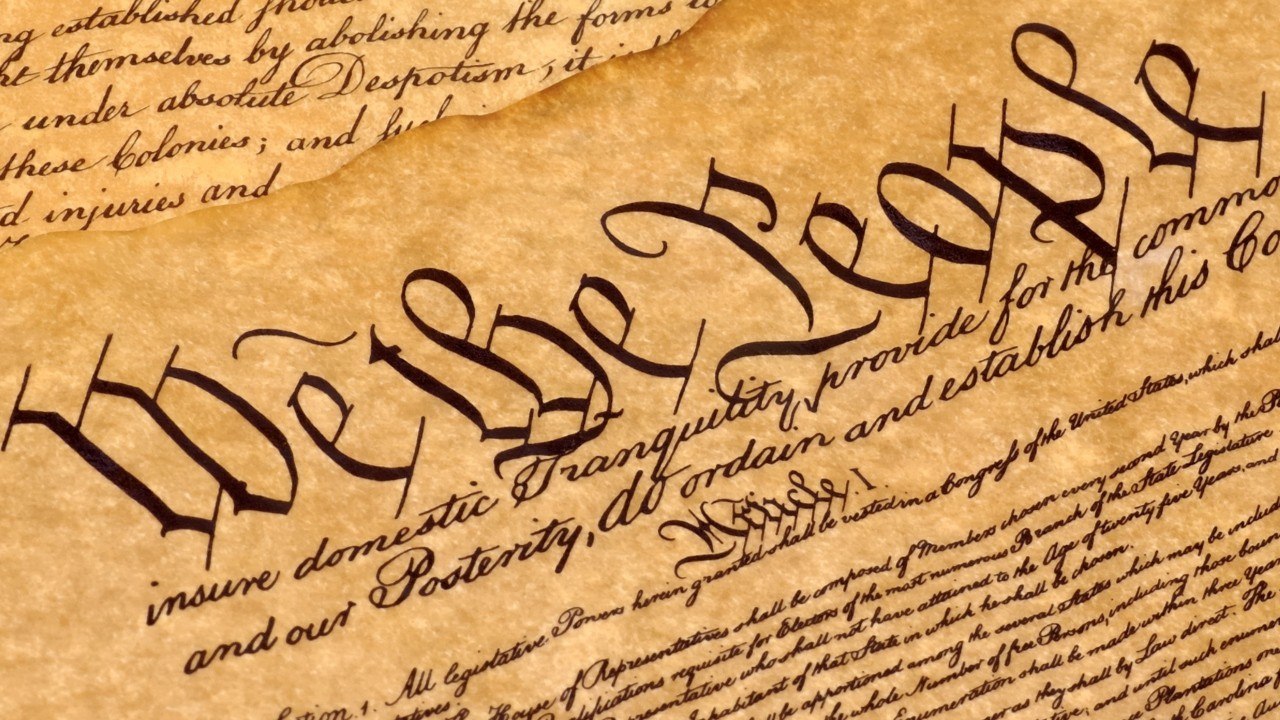 established
themselves by abolishing the forms
under absolute Despotism, it is
these Colonies; and such
injuries and
We the People
insure domestic Tranquility, provide for the common
and our Posterity, do ordain and establish this Co
Article. I.
1. All legislative Powers herein granted shall be vested in a Congress of the United States, which shall
House of Representatives shall be composed of Members chosen every second Year by the
requisite for Electors of the most numerous Branch of the State Legislature
who shall not have attained to the Age of twenty five Years, and
of that State in which he shall be chosen.
be apportioned among the several States which may be
the whole Number of free Persons, including those
shall be made within three
as they shall by Law direct. The
and until such
Plantations
Carolina